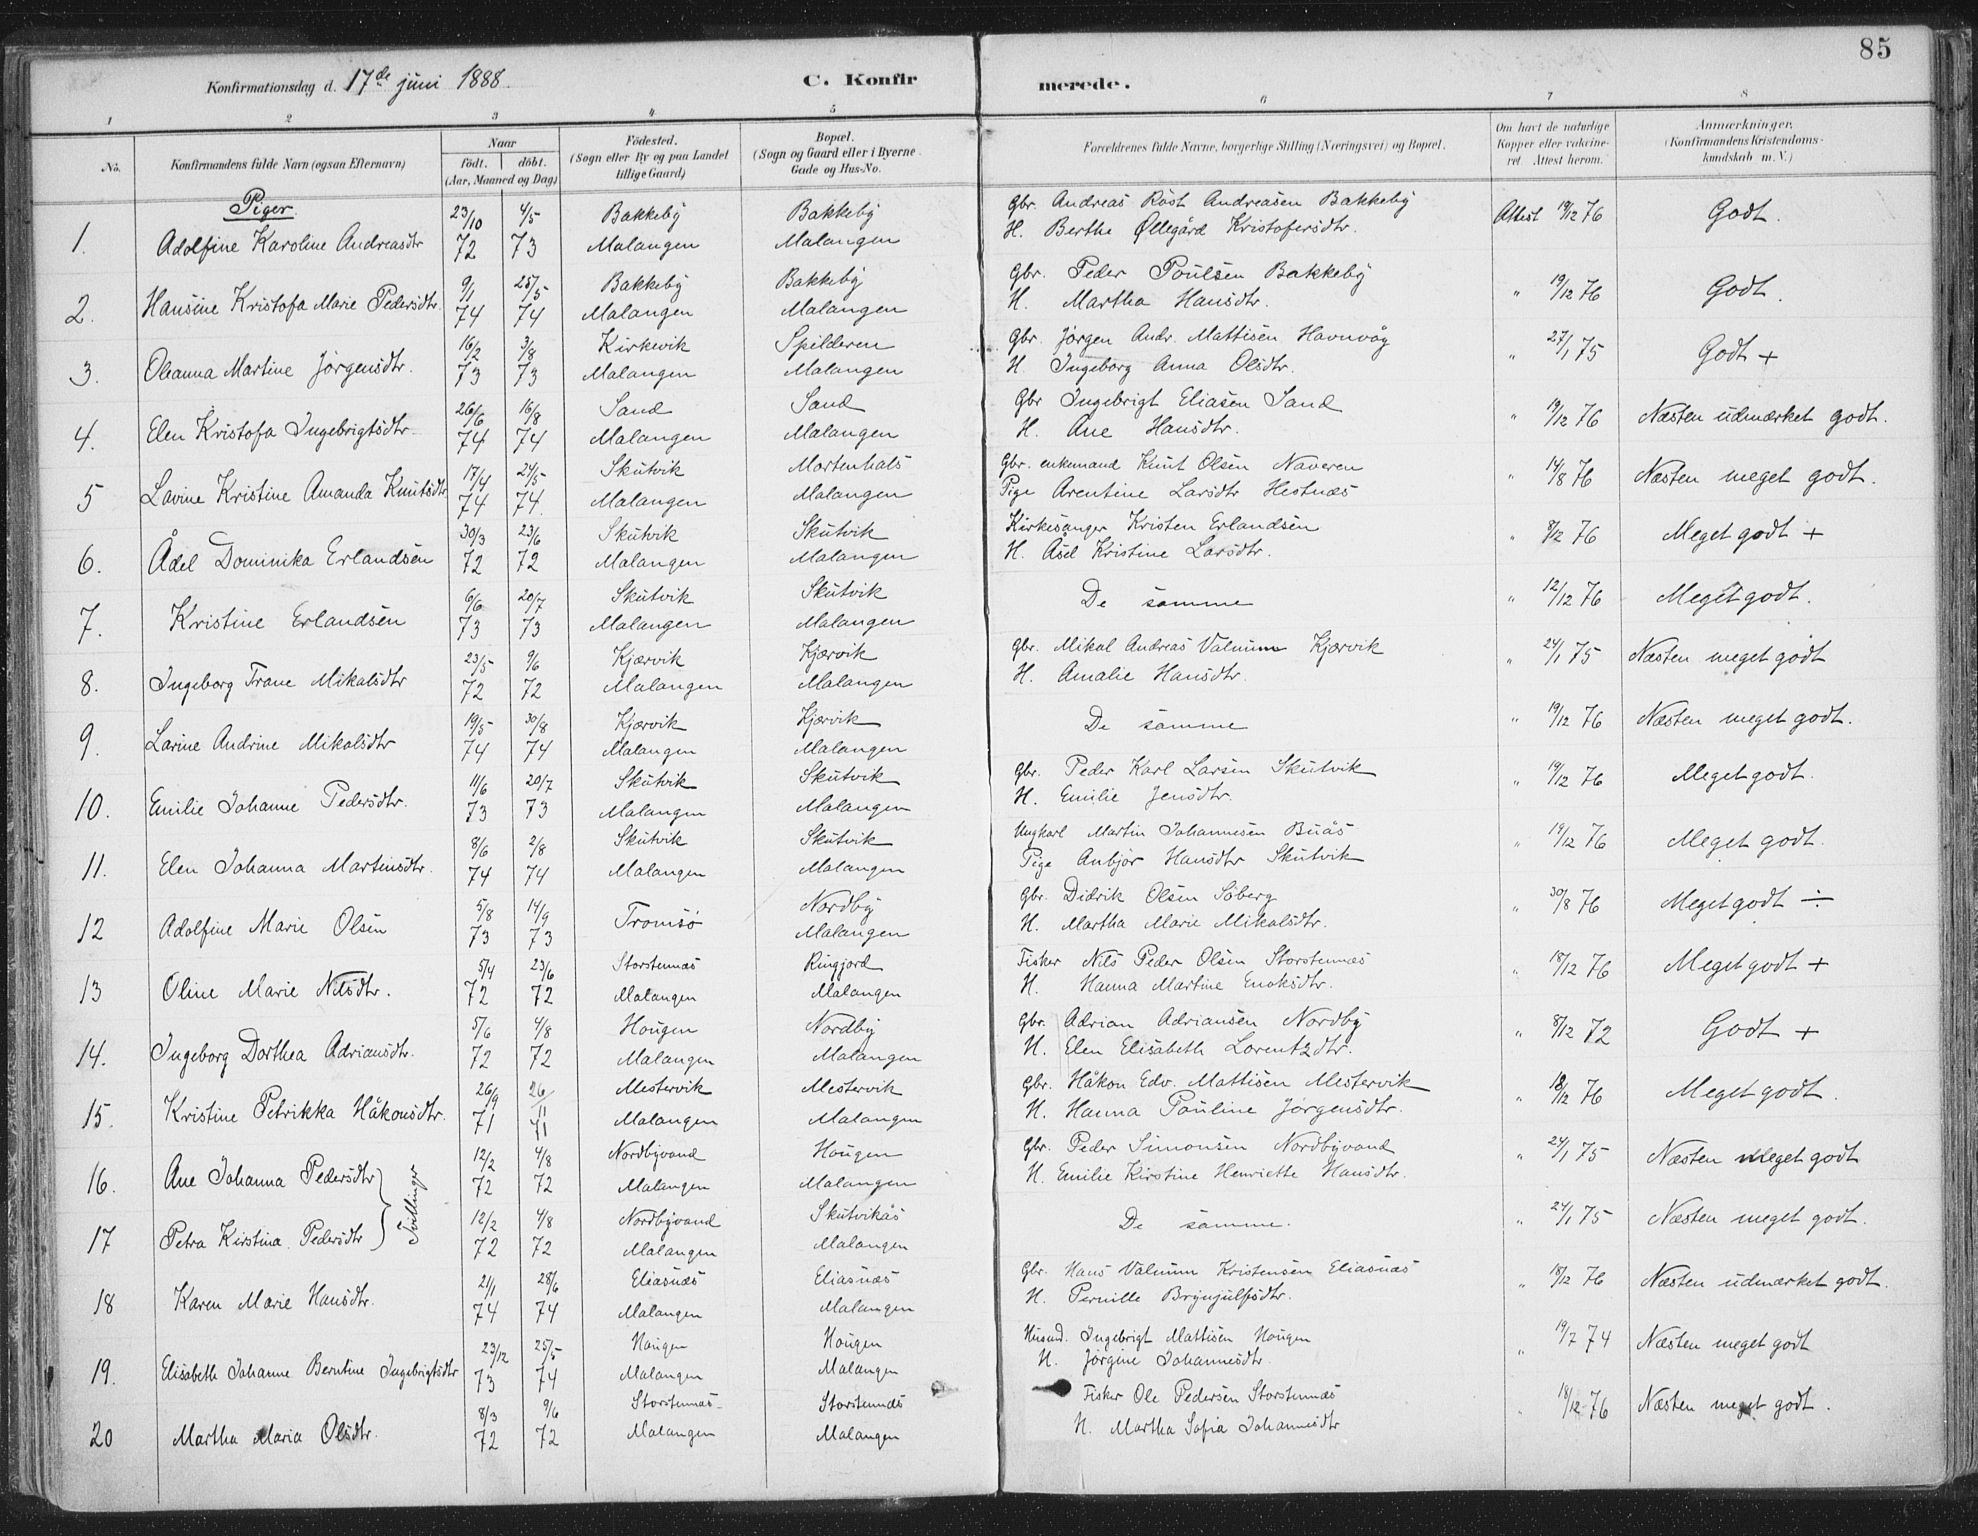 85
Konfirmationsdag d. 17de juni 1888.
C. Konfirmerede.
1 2 3 4 5 6 7 8
No. Konfirmandens fulde Navn (ogsaa Efternavn) Naar födt. döbt. (Aar, Maaned og Dag) Födested. (Sogn eller By og paa Landet tillige Gaard) Bopæl. (Sogn og Gaard eller i Byerne Gade og Hus-No. Forældrenes fulde Navne, borgerlige Stilling (Næringsvei) og Bopæl. Om havt de naturlige Kopper eller vakcineret. Attest herom. Anmærkninger. (Konfirmandens Kristendomskundskab m. V.)
Piger.
23/10 4/5 Bakkeby Bakkeby Gbr. Andreas Röst Andreasen Bakkeby Attest 19/12 76 Godt.
1. Adolfine Karoline Andreasdtr 72 73 Malangen Malangen H. Berthe Øllegård Kristofersdtr.
9/1 25/5 Bakkeby Bakkeby Gbr. Peder Poulsen Bakkeby " 19/12 76 Godt.
2. Hansine Kristofa Marie Pedersdtr. 74 74 Malangen Malangen H. Martha Hansdtr.
16/2 3/8 Kirkevik Spilderen Gbr. Jørgen Andr. Mattisen Havnvåg " 27/1 75 Godt +
3. Oleanna Martine Jørgensdtr. 73 73 Malangen Malangen H. Ingeborg Anna Olsdtr.
26/6 16/8 Sand Sand Gbr Ingebrigt Eliasen Sand " 19/12 76 Næsten udmærket godt.
4. Elen Kristofa Ingebrigtsdtr. 74 74 Malangen Malangen H. Ane Hansdtr.
17/4 24/5 Skutvik Mortenhals Gbr. enkemand Knut Olsen Naveren " 14/8 76 Næsten meget godt.
5 Lavine Kristine Amanda Knutsdtr 74 74. Malangen Malangen Pige Arentine Larsdtr Hestnæs
30/3 23/6 Skutvik Skutvik Kirkesanger Kristen Erlandsen " 8/2 76 Meget godt +
6. Ådel Dominika Erlandsen 72 72 Malangen Malangen H. Åsel Kristine Larsdtr.
6/6 20/7 Skutvik Skutvik De samme " 12/12 76 Meget godt.
7. Kristine Erlandsen 73 73 Malangen Malangen
23/5 9/6 Kjærvik Kjærvik Gbr. Mikal Andreas Valnum Kjærvik " 24/1 75 Næsten meget godt
8. Ingeborg Trane Mikalsdtr 72 72 Malangen Malangen H. Amalie Hansdtr.
19/5 30/8 Kjærvik Kjærvik De samme " 19/12 76 Næsten meget godt.
9. Larine Andrine Mikalsdtr 74 74 Malangen Malangen
11/6 20/7 Skutvik Skutvik Gbr. Peder Karl Larsen Skutvik " 19/12 76 Meget godt.
10. Emilie Johanne Pedersdtr. 73 73 Malangen Malangen H. Emilie Jensdtr.
8/6 2/8 Skutvik Skutvik Ungkarl Martin Johannesen Buås " 19/12 76 Meget godt.
11. Elen Johanna Martinsdtr. 74 74 Malangen Malangen Pige Anbjør Hansdtr Skutvik
5/8 14/9 Tromsö Nordby Gbr. Didrik Olsen Söberg " 30/8 76 Meget godt ÷
12 Adolfine Marie Olsen 73 73 Malangen H. Martha Marie Mikalsdtr.
5/4 23/6 Storstennæs Ringjord Fisker Nils Peder Olsen Storstennæs " 18/12 76 Meget godt +
13 Oline Marie Nilsdtr. 72 72 Malangen Malangen H. Hanna Martine Enoksdtr.
5/6 4/8 Hougen Nordby Gbr. Adrian Adriansen Nordby " 8/12 72 Godt +
14. Ingeborg Dorthea Adriansdtr. 72 72 Malangen Malangen H. Elen Elisabeth Lorentzdtr.
26/9 26/11 Mestervik Mestervik Gbr. Håkon Edv. Mattisen Mestervik " 18/12 76 Meget godt.
15. Kristine Petrikka Håkonsdtr. 71 71 Malangen Malangen H. Hanna Pauline Jørgensdtr.
12/2 4/8 Nordbyvand Hougen Gbr. Peder Simonsen Nordbyvand " 24/1 75 Næsten meget godt
16. Ane Johanna Pedersdtr 72 72 Malangen Malangen H. Emilie Kirstine Henriette Hansdtr.
Tvillinger
12/2 4/8 Nordbyvand Skutvikås De samme. " 24/1 75 Næsten meget godt.
17 Petra Kirstina Pedersdtr 72 72 Malangen Malangen
21/1 28/6 Eliasnæs Eliasnæs Gbr. Hans Valnum Kristensen Eliasnæs " 18/12 76 Næsten udmærket godt.
18 Karen Marie Hansdtr. 74 74 Malangen Malangen H. Pernille Brynjulfsdtr.
23/12 25/5 Hougen Hougen Husmd. Ingebrigt Mattisen Hougen " 19/7 74 Næsten meget godt
19. Elisabeth Johanne Berntine Ingebrigtsdtr 73 74 Malangen Malangen H. Jörgine Johannesdtr.
8/3 9/6 Storstennæs Storstennæs Fisker Ole Pedersen Storstennæs " 18/12 76 Næsten meget godt.
20 Martha Maria Olsdtr. 72 72 Malangen Malangen H. Martha Sofia Johannesdtr